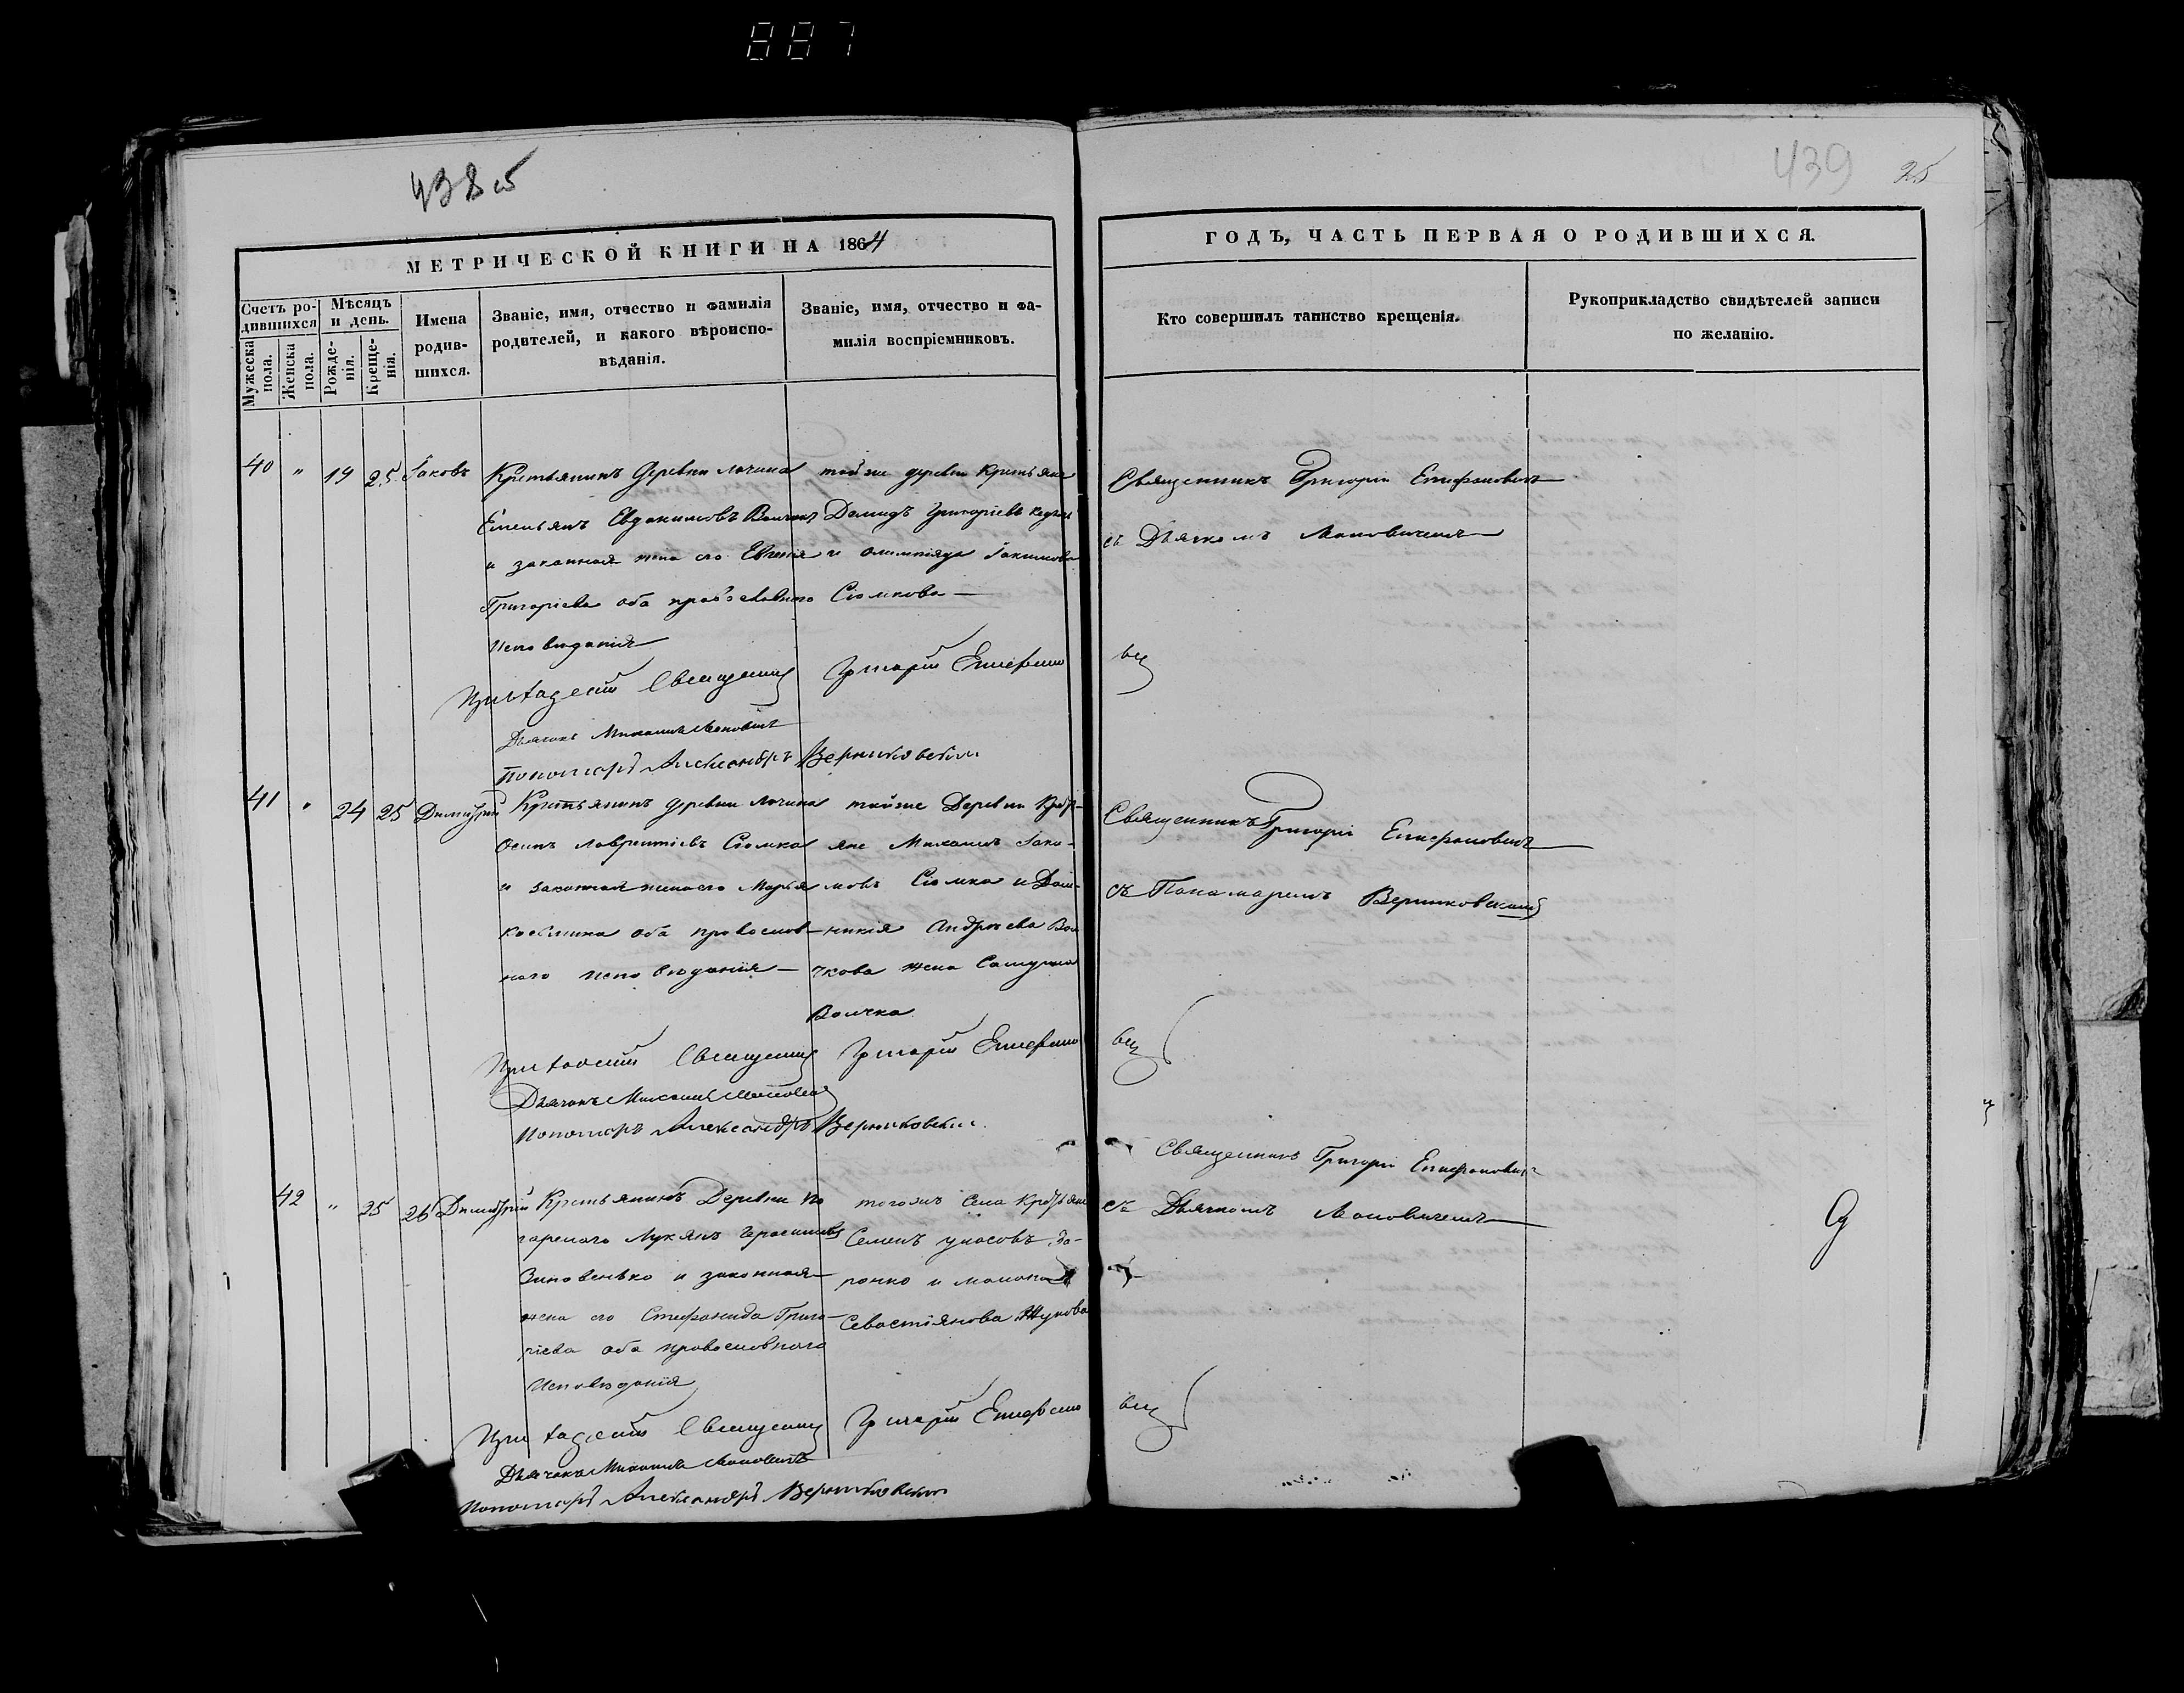 887
438 об
439
25
МЕТРИЧЕСКОЙ КНИГИ НА 1864
ГОДЪ, ЧАСТЬ ПЕРВАЯ О РОДИВШИХСЯ.
Счетъ ро-
дившихся
Мужеска
пола.
Женска
пола.
Мѣсяцъ
и день.
Рожде-
нія.
Креще-
нія.
Имена
родив-
шихся.
Званіе, имя, отчество и фамилія
родителей, и какого вѣроиспо-
вѣданія.
Званіе, имя, отчество и фа-
милія воспріемниковъ.
Кто совершилъ таинство крещенія.
Рукоприкладство свидѣтелей записи
по желанію.
40 " 19 25 Іаковъ
Крестьянинъ Деревни
Емельянъ Евдокимовъ Волчокъ
и законная жена его Евгенія
Григоріева оба православнаго
Исповеданія
той же деревни Крестьяне
Демидъ Григоріевъ
и Олимпіяда Іакимова
Сіомкова
Священникъ Григорій Епифановичъ
съ Дьячкомъ
Священникъ Григорій Епифано
вич
Дьячокъ Михаилъ
Пономарь Александръ Верниковский
41 " 24 25 Димитрій
Крестьянинъ деревни
Осипъ Лаврентіевъ Сіомка
и законная жена его Марья
Косьмина оба православ-
наго исповеданія
той же Деревни Крестья-
яне Михаилъ Іаки-
мовъ Сіомка и Дом-
никія Андреева Вол-
чкова жена
Волчка
Священникъ Григорій Епифановичъ
съ Понамаремъ Верниковскимъ
Священникъ Григорій Епифано
вич
Дьячокъ Михаилъ
Пономарь Александръ Верниковский
42 " 25 26 Димитрій
Крестьянинъ Деревни По
горелаго Лукянъ Герасимовъ
Зиновенько и законная
жена его Стефанида Григо-
ріева оба православнаго
Исповеданія
тогожъ Села Крестьяне
Семенъ
ронко и
Севастіянова Жукова
Священникъ Григорій Епифановичъ
съ Дьячкомъ
Священникъ Григорій Епифано
вич
Дьячокъ Михаилъ
Пономарь Александръ Верниковский